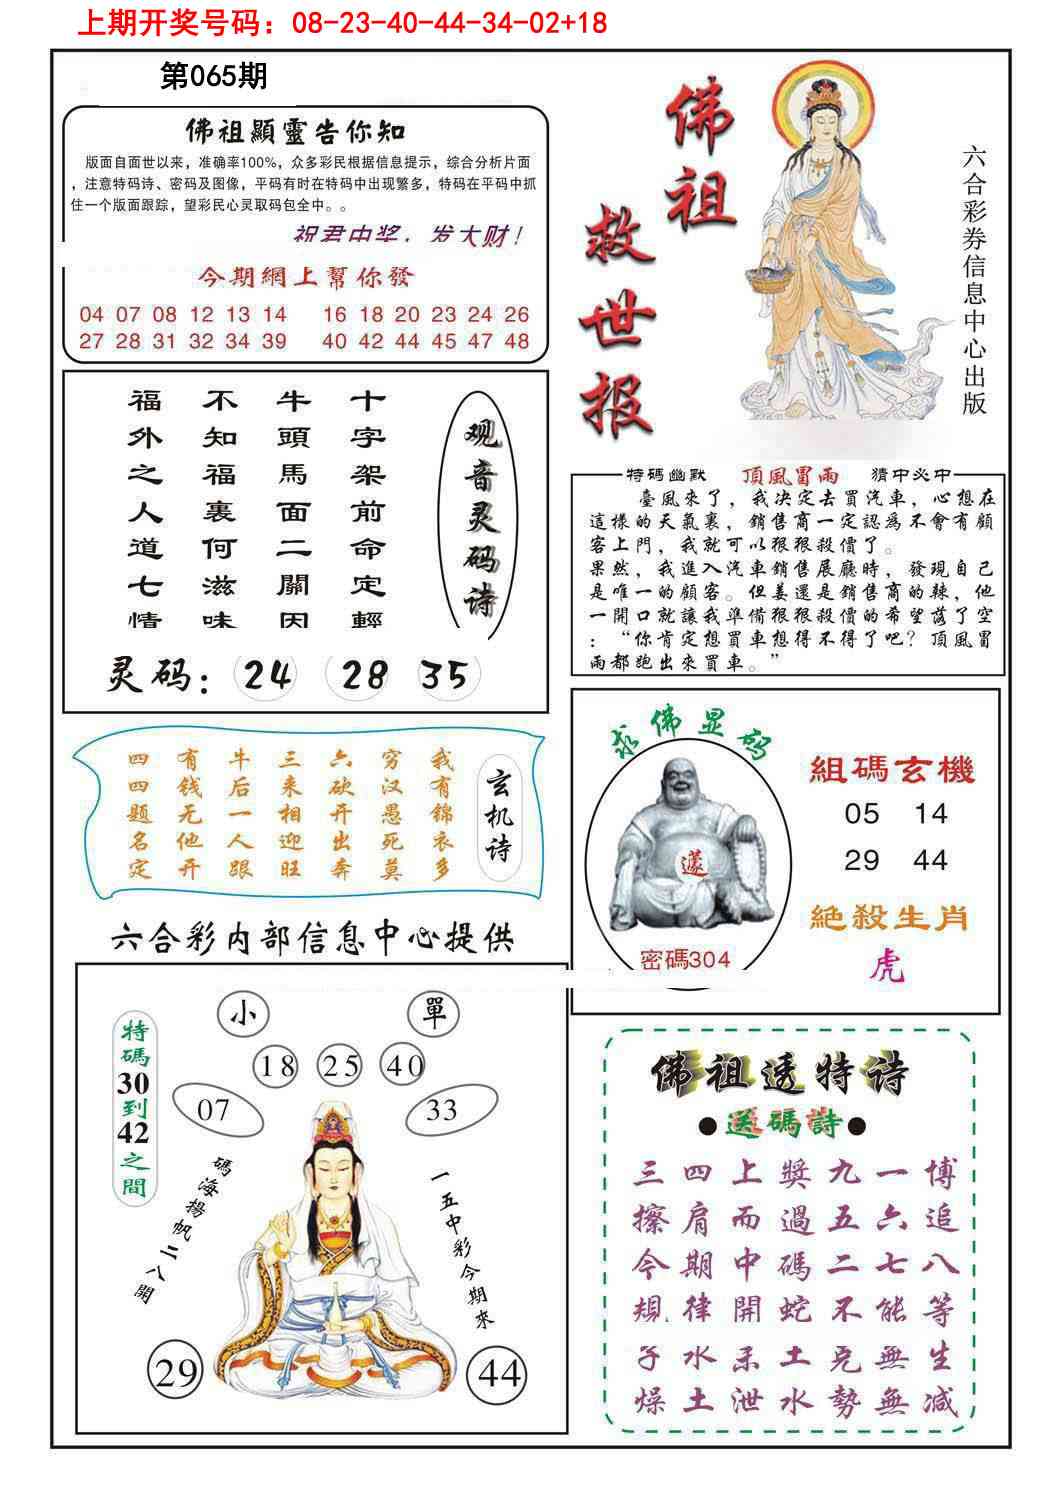 上期开奖号码：08-23-40-44-34-02+18
第065期
佛祖顯靈告你知
版面自面世以来，准确率100%，众多彩民根据信息提示，综合分析片面
，注意特码诗、密码及图像，平码有时在特码中出现繁多，特码在平码中抓
住一个版面跟踪，望彩民心灵取码包全中。。
祝君中奖，发大财！
今期網上幫你發
04 07 08 12 13 14 16 18 20 23 24 26
27 28 31 32 34 39 40 42 44 45 47 48
佛祖
救世报
六合彩券信息中心出版
观音灵码诗
十字架前命定輕
牛頭馬面二關因
不知福裏何滋味
福外之人道七情
灵码：24 28 35
特碼幽默 頂風冒雨 猜中必中
臺風來了，我决定去買汽車，心想在
這樣的天氣裏，銷售商一定認爲不會有顧
客上門，我就可以狠狠殺價了。
果然，我進入汽車銷售展廳時，發現自己
是唯一的顧客。但姜還是銷售商的辣，他
一開口就讓我準備狠狠殺價的希望落了空
：“你肯定想買車想得不得了吧？頂風冒
雨都跑出來買車。”
玄机诗
我有锦衣多
穷汉愚死莫
六砍开出奔
三来相迎旺
牛后一人跟
有钱无他开
四四题名定
求佛显码
密碼304
組碼玄機
05 14
29 44
絕殺生肖
虎
六合彩内部信息中心提供
特碼30到42之間
小
單
18 25 40
07
33
碼海揚帆二八開
一五中彩今期來
29
44
佛祖透特诗
●送碼詩●
三四上獎九一博
擦肩而過五六追
今期中碼二七八
規律開蛇不能等
子水禾土克無生
燥土泄水勢無减